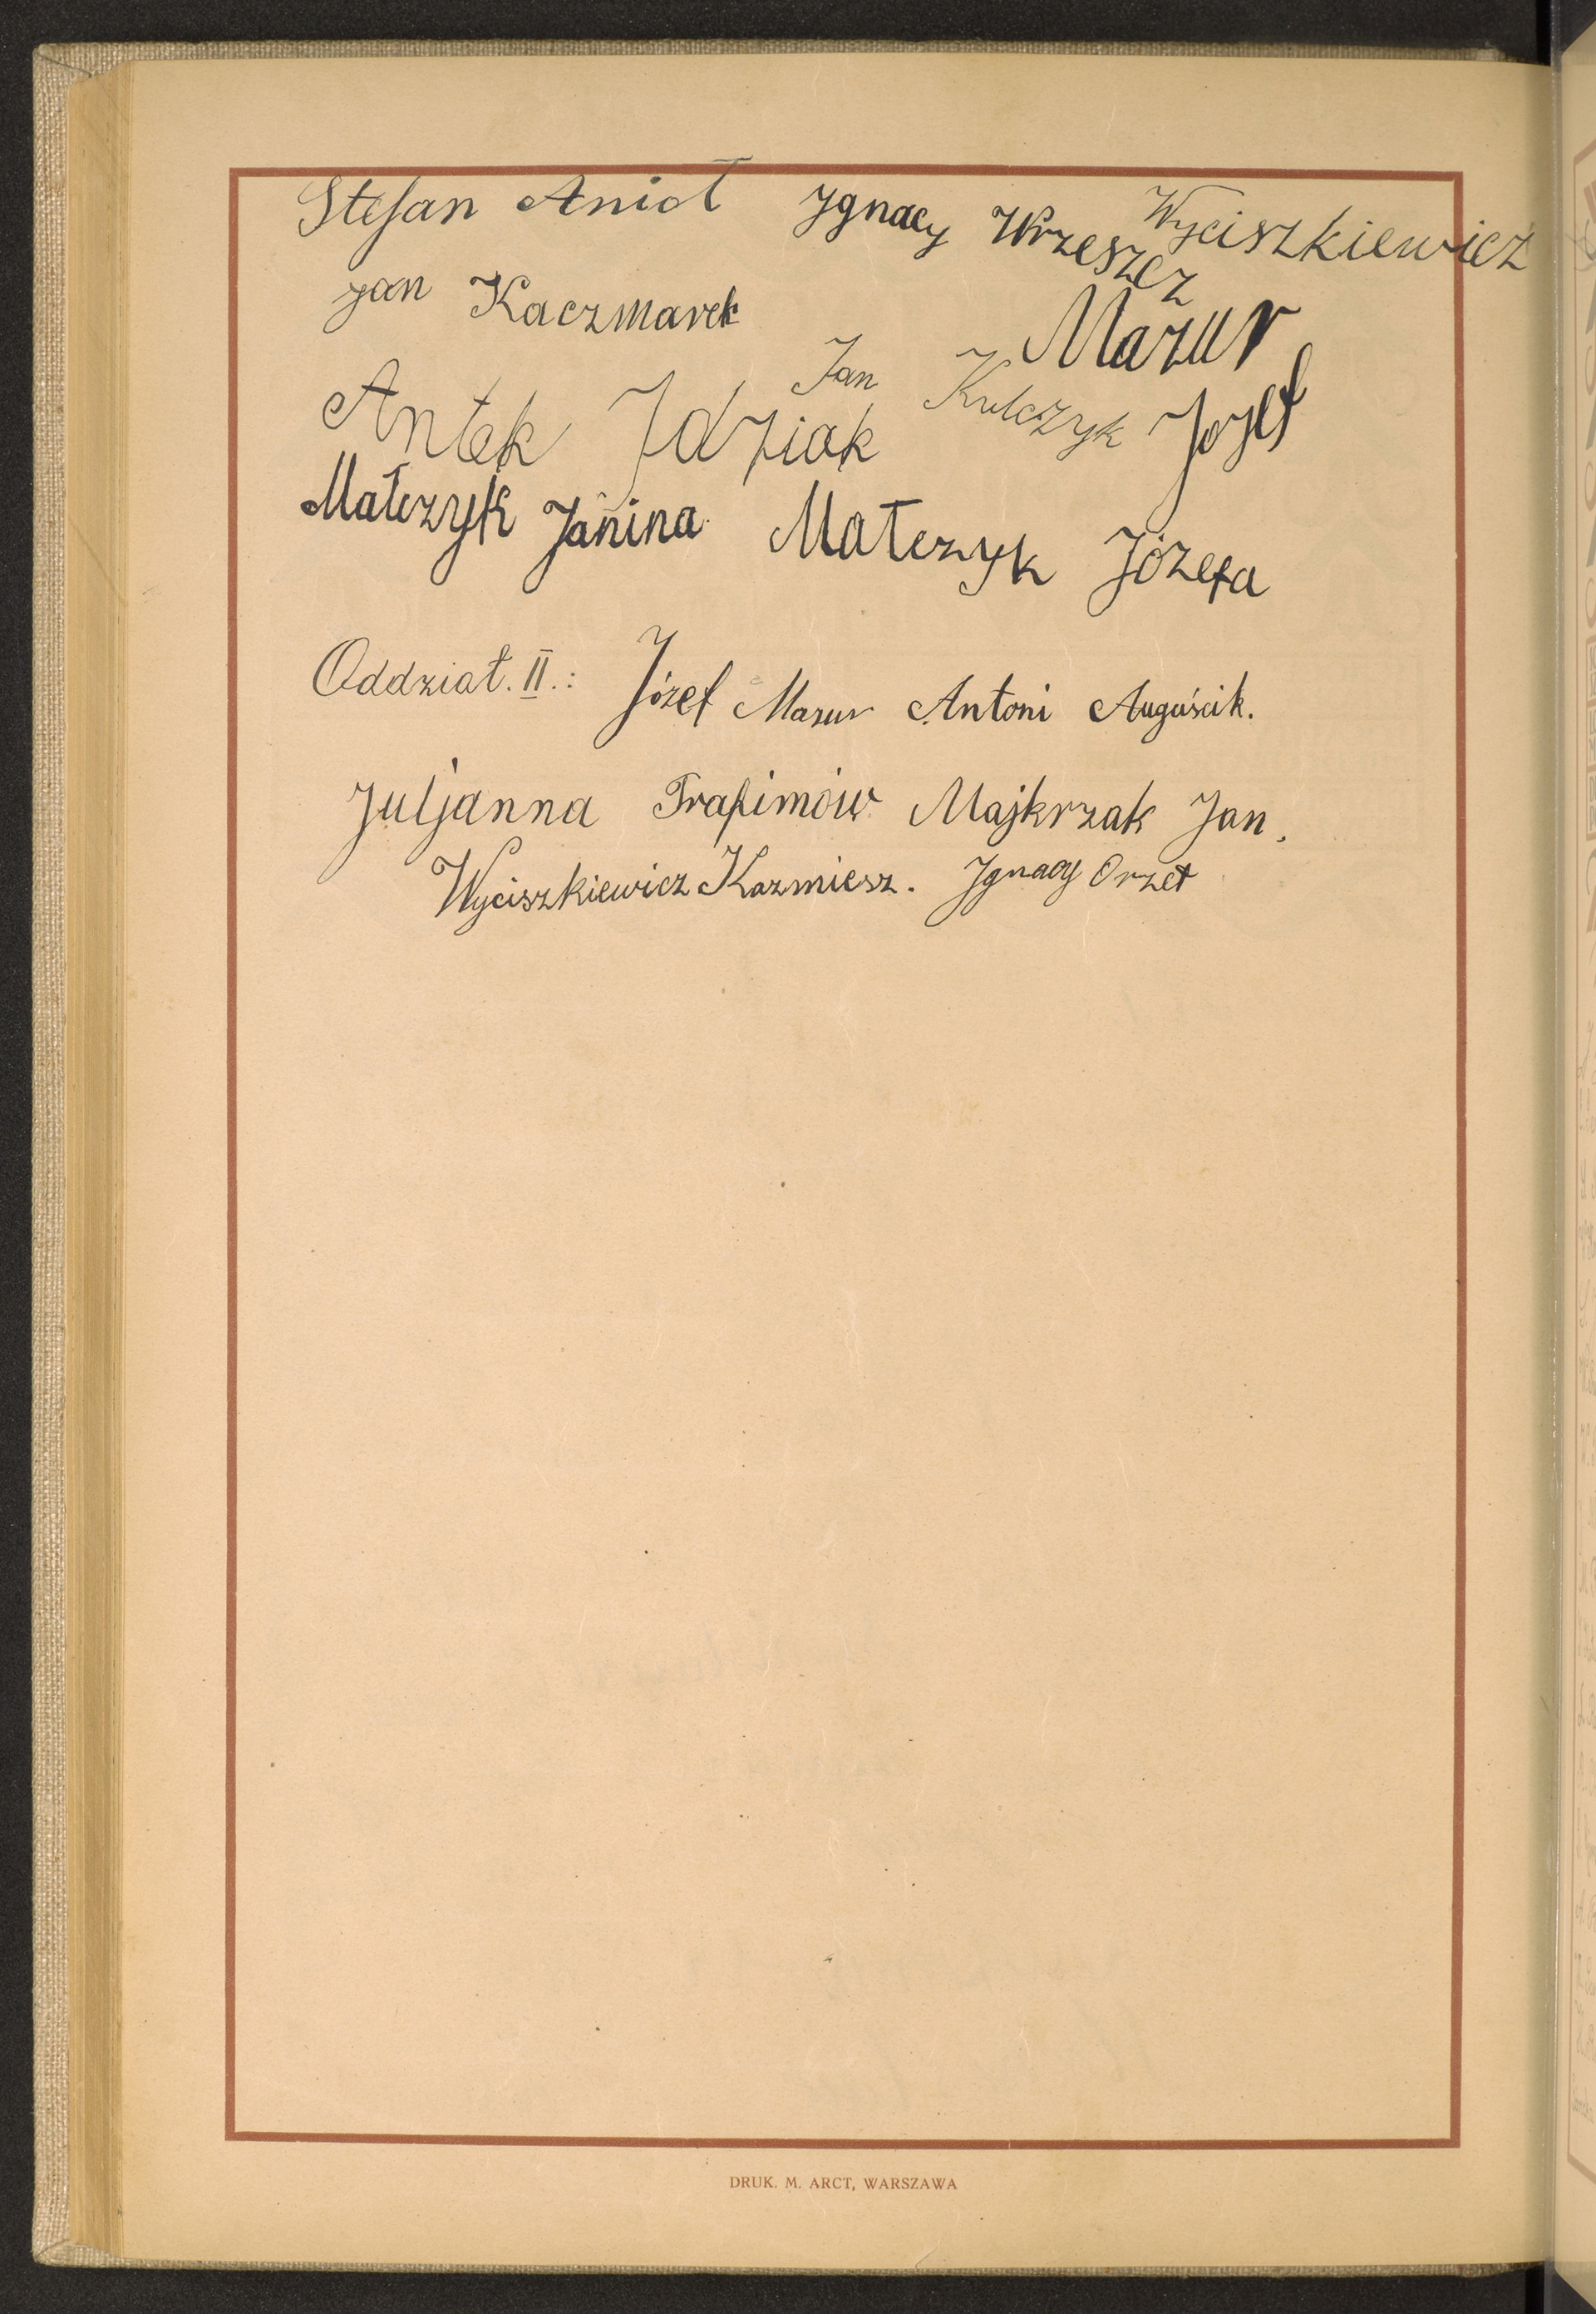 Stefan Anioł Ignacy Wrzeszcz Wyciszkiewicz
Jan Kaczmarek Mazur
Antek Idziak Jan Kulczyk Jozef
Małczyk Janina Małczyk Józefa
Oddział. II.: Józef Mazur Antoni Auguścik.
Juljanna Trafimów Majkrzak Jan.
Wyciszkiewicz Kazmiesz. Ignacy Orzeł
DRUK. M. ARCT, WARSZAWA